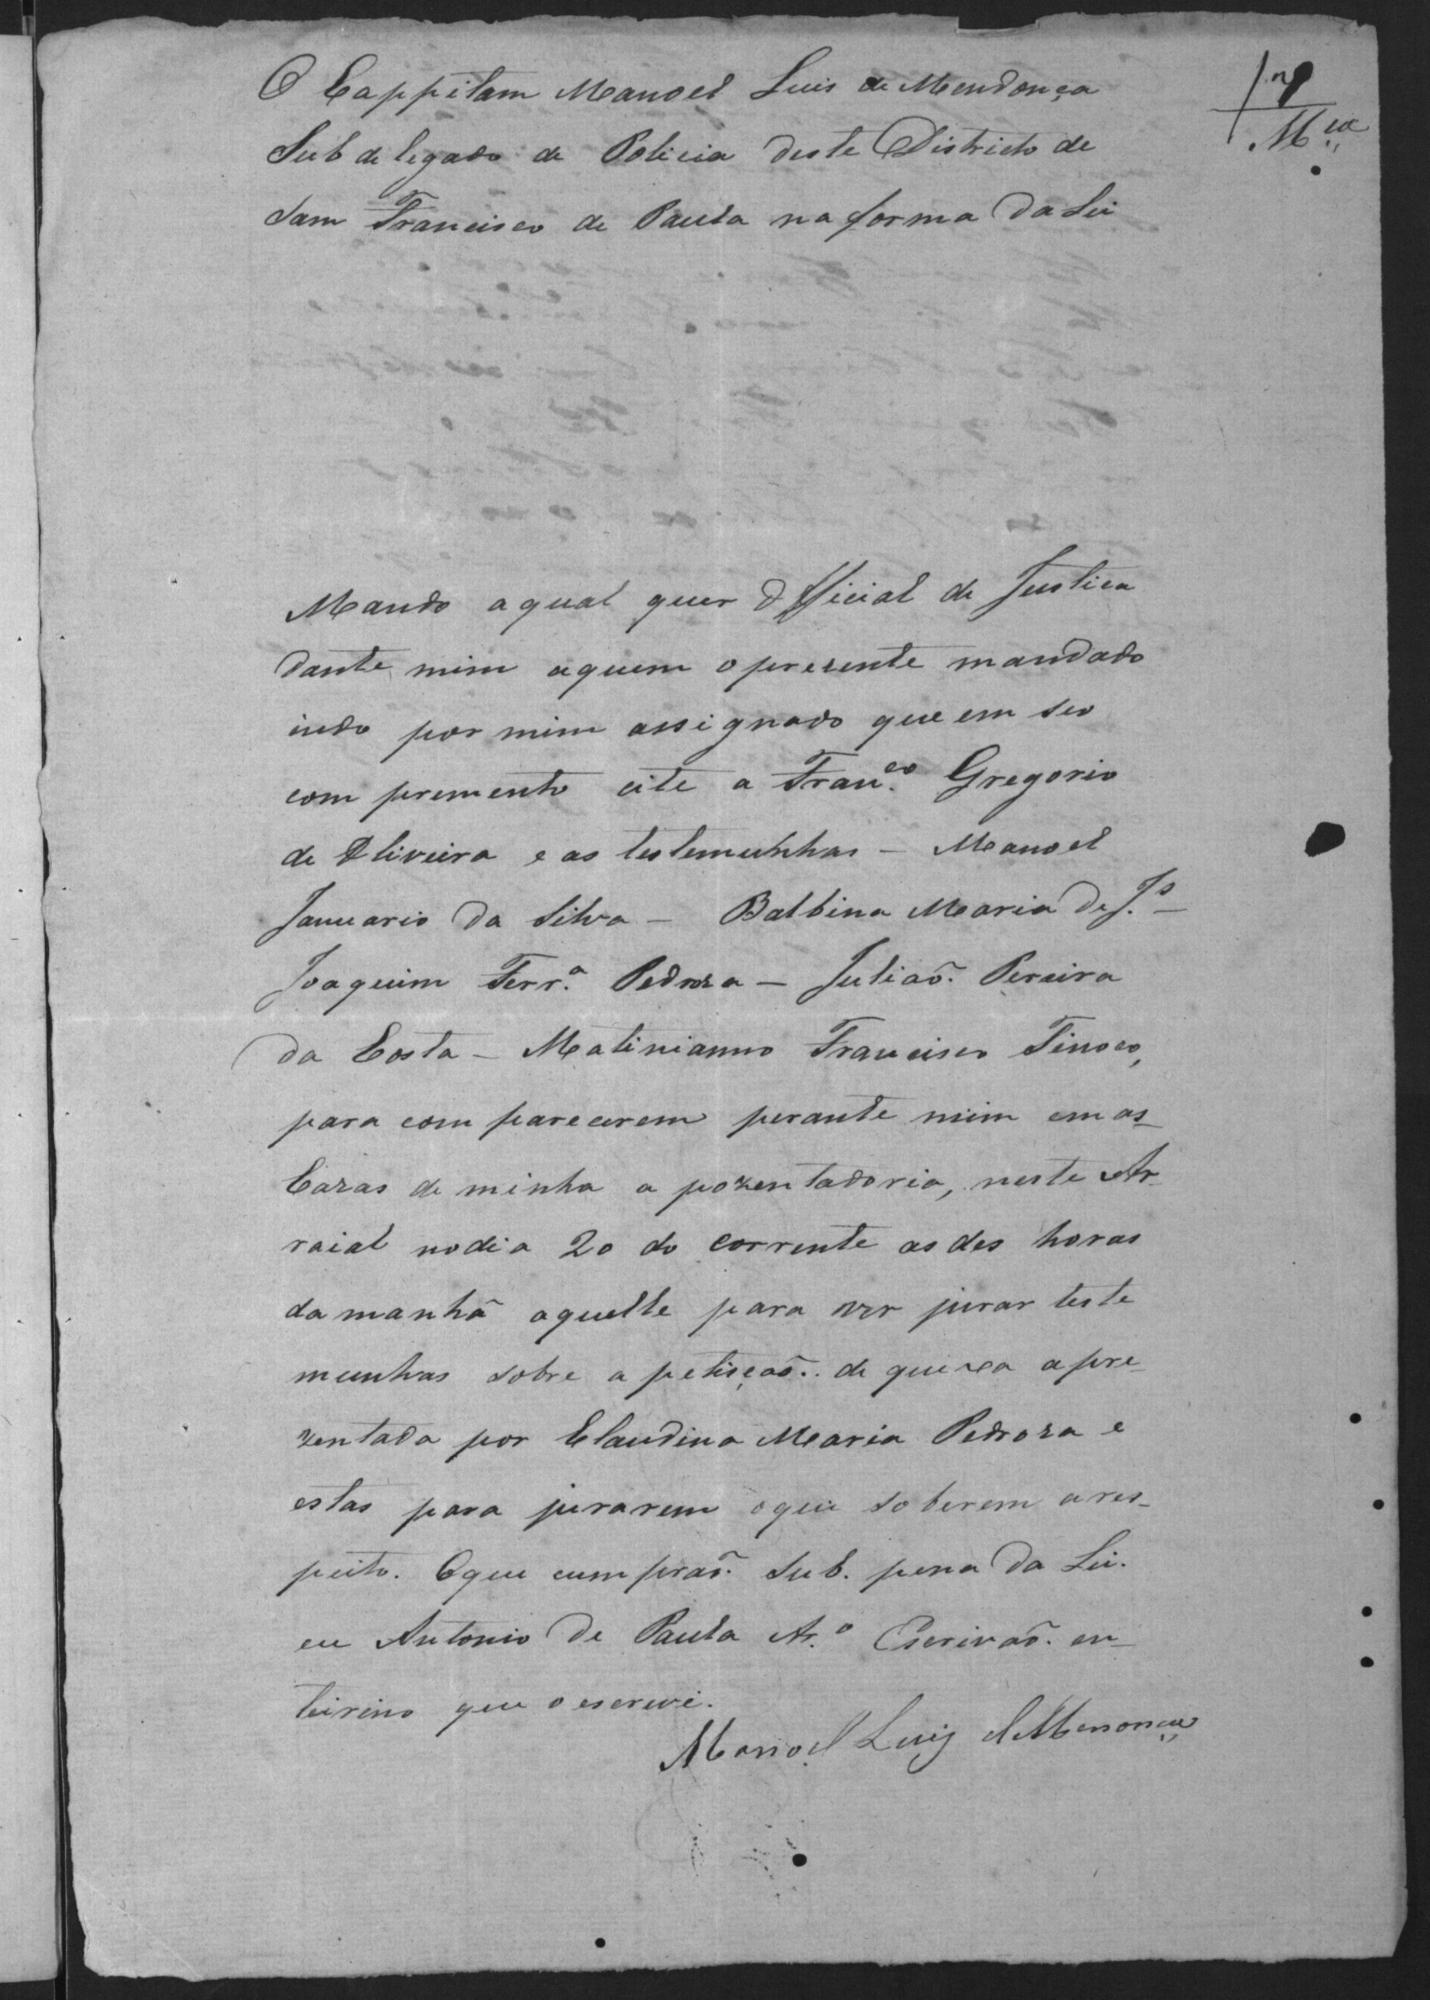 O Cappitam Manoel Luis de Mendonça
Sub de legado de Policia deste Districto de
Sam Francisco de Paula na forma da Lei
Mça
Mando aqual quer Official de Justica
dante mim aquem o prezente mandado
indo por mim assignado que em seo
com premento cite a Franco. Gregorio
de Oliveira e as testemunhas - Manoel
Januario da Silva - Balbina Maria de Js. -
Joaquim Ferra. Pedroza - Julião. Pereira
da Costa - Matinianno Francisco Tinoco,
para com parecerem perante mim em as_
Cazas de minha a pozentadoria, neste Ar_
raial nodia 20 do corrente as des horas
da manhã aquelle para ver jurar teste
munhas sobre a petiçaõ. de queixa apre_
zentada por Claudina Maria Pedroza e
estas para jurarem oque soberem ares_
peito. Oque cumpraõ. Sub. pena da Lei.
eu Antonio de Paula Aro. Escrivaõ. en_
teirino que o escrevi.
Manoel Luiz de Mendonça